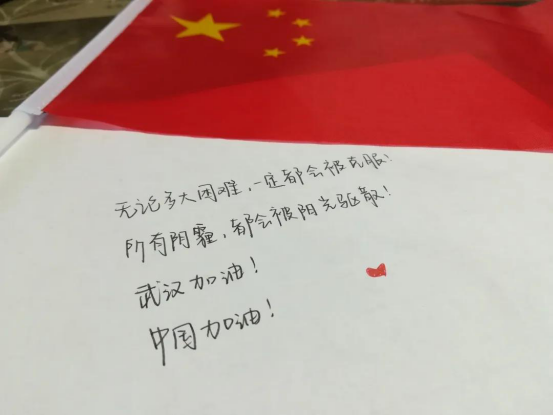 无论多大困难,一定都会被克服!
所有阴霾,都会被阳光驱散!
武汉加油!
中国加油!